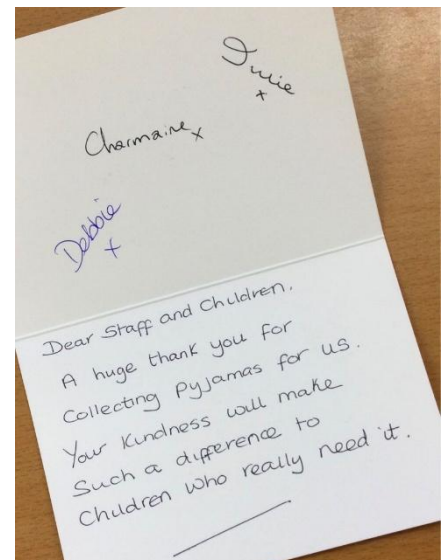 Julie
x
Charmaine x
Debbie
x
Dear Staff and Children.
A huge thank you for
Collecting Pyjamas for us.
Your Kindness will make
Such a difference to
Children who really need it.